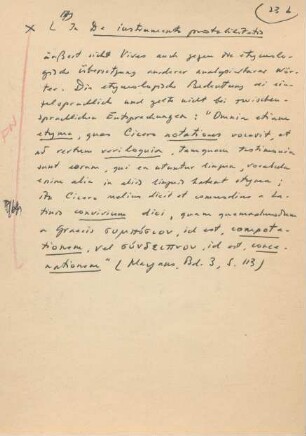 (33 b)
x ( In De instrumento probabilitatis
äußert sicht Vives auch gegen die etymolo-
gische Übersetzung anderer analysierbarer Wör-
ter. Die etymologische Bedeutung ist ein-
zelsprachlich und gilt nicht bei zwischen-
sprachlichen Entsprechungen: "Omnia etiam
etyma, quas Cicero notationes vocavit, et
ad verbum veriloquia, tamquam testimonia
sunt eorum, qui ea utuntur lingua, vocabula
enim alia in aliis linguis habent etyma;
ita Cicero melius dicit et commodius a La-
tinis convivium dici, quam quemadmodum
a Graecis συμπόσιον, id est, compota-
tionem, vel σύνδειπνον, id est, conce-
nationem" (Mayans, Bd. 3, S. 113)